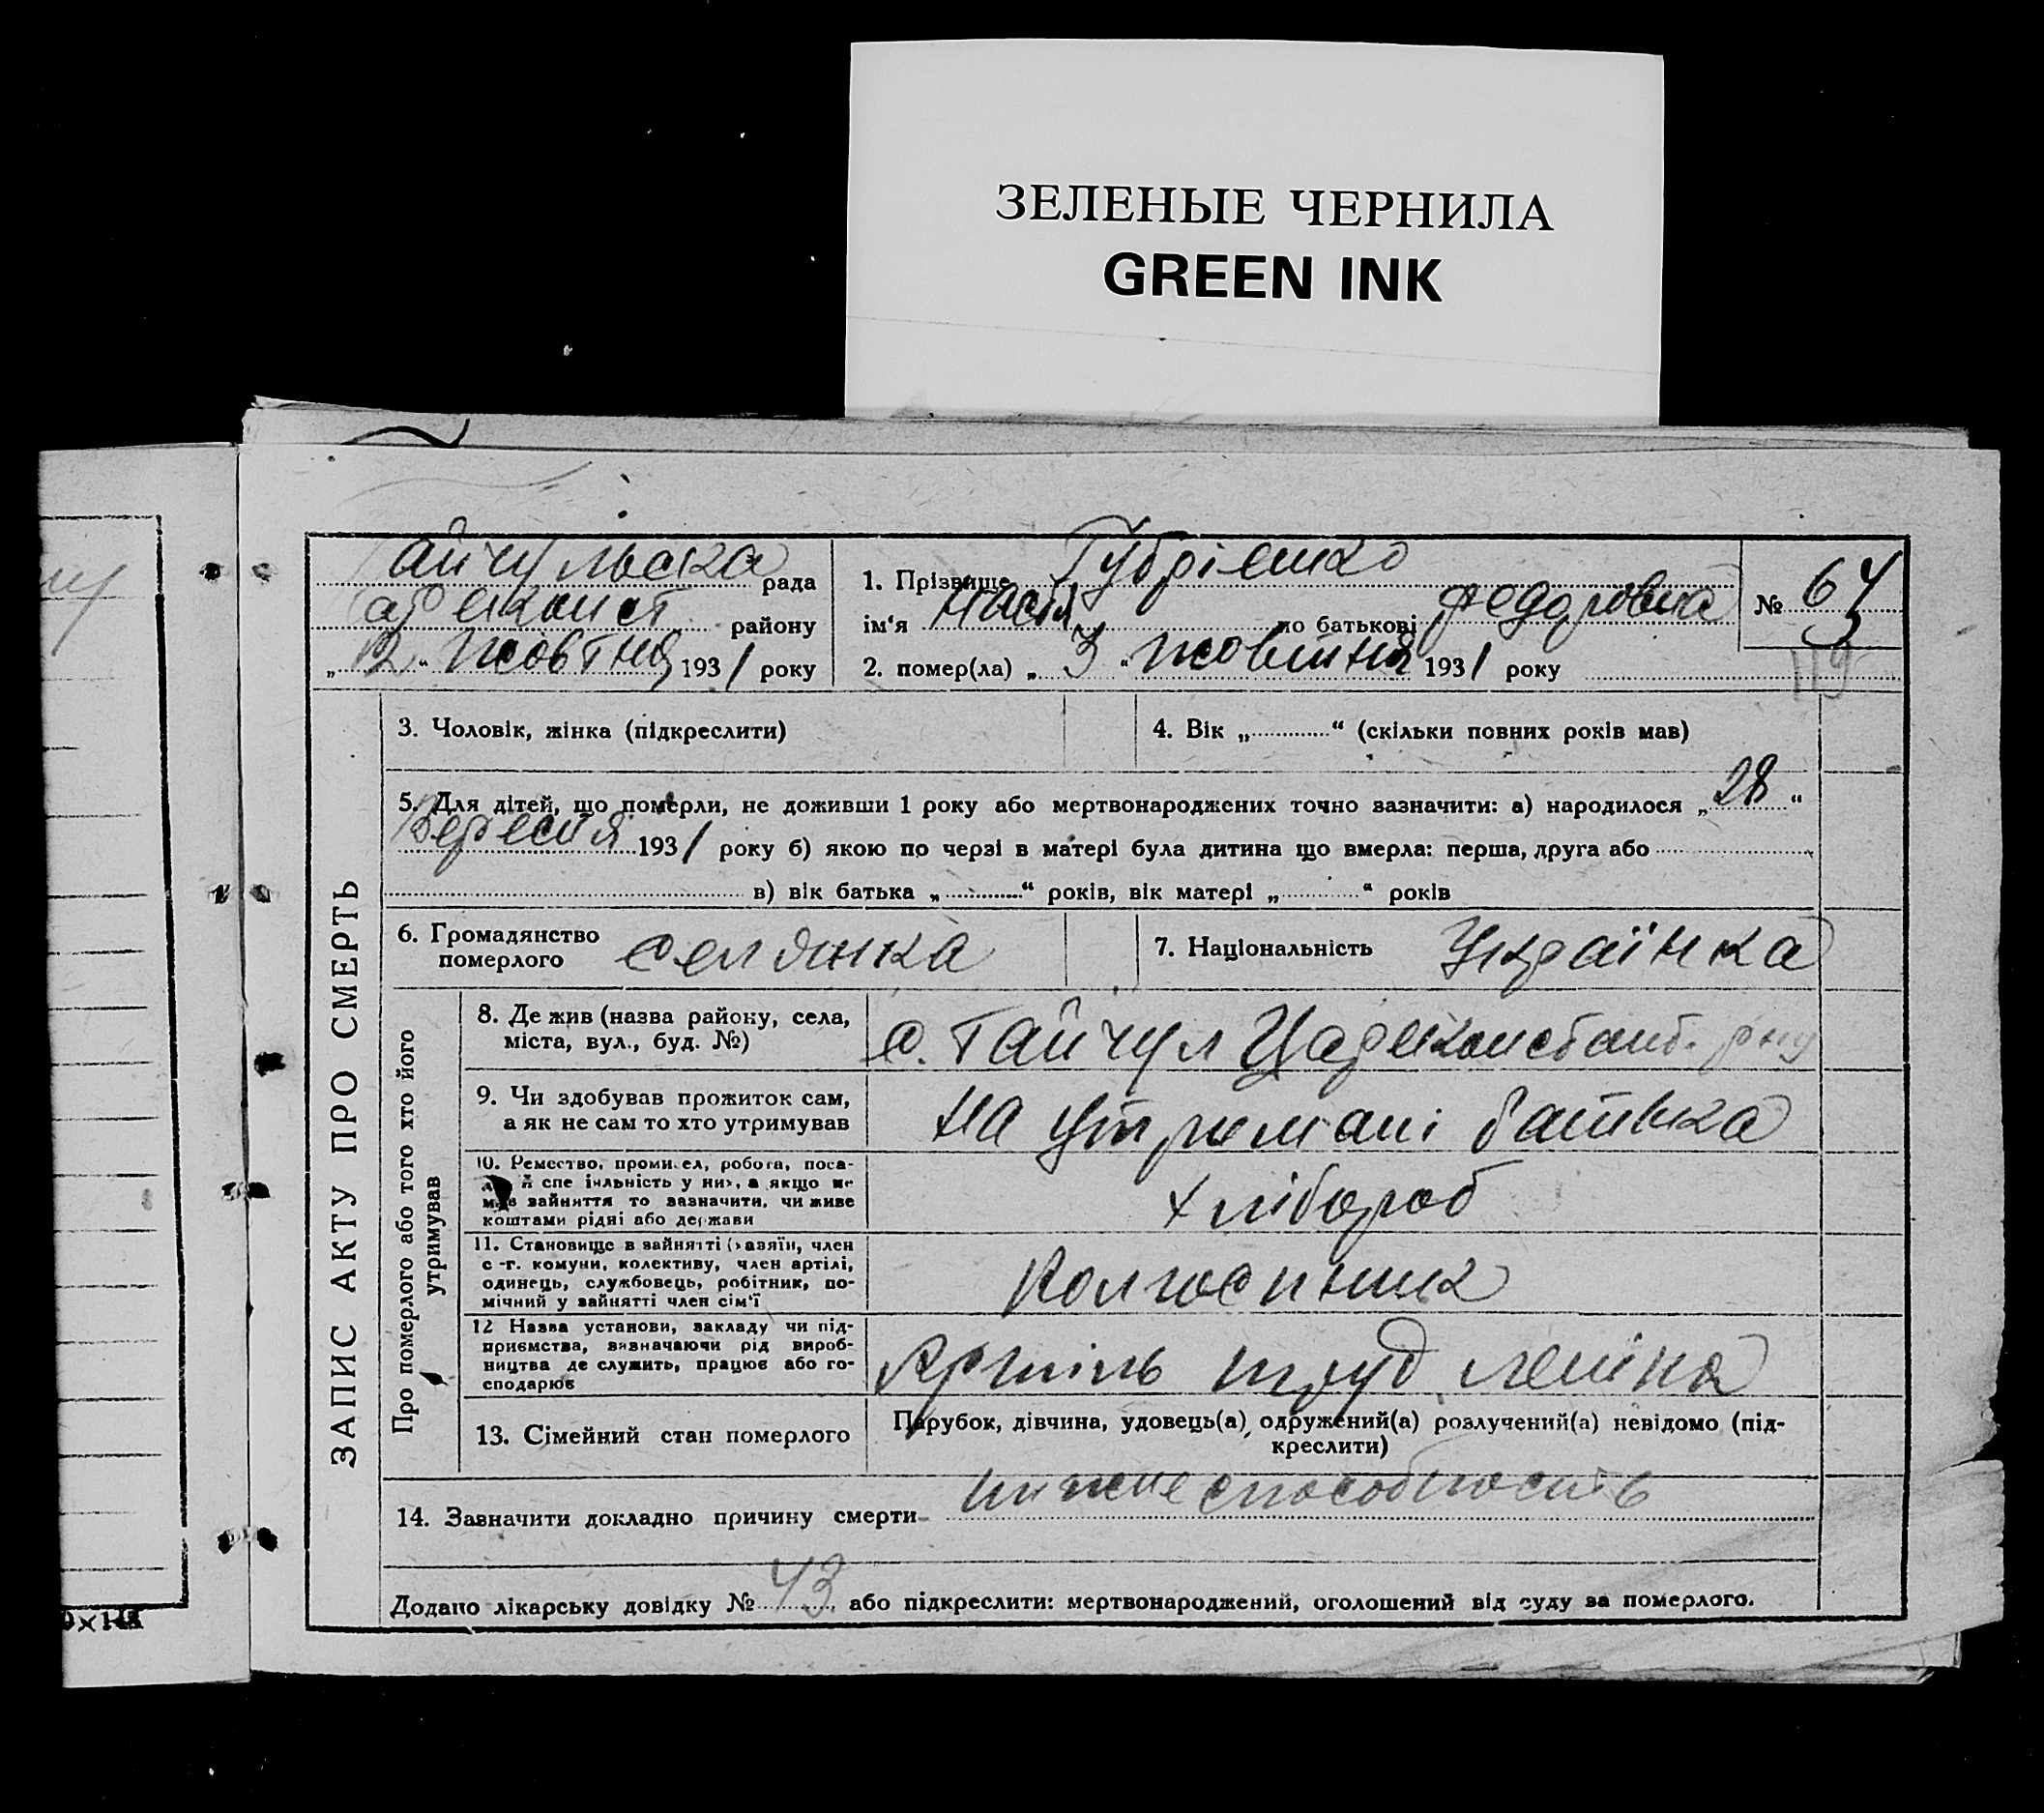 ЗЕЛЕНЫЕ ЧЕРНИЛА
GREEN INK
Гайчульська рада
району
„12“ жовтня 1931 року
1. Прізвище Губрієнко
ім'я Настя по батькові Федоровна
№ 64
2. помер(ла) „3“ жовтня 1931 року
119
ЗАПИС АКТУ ПРО СМЕРТЬ
3. Чоловік, жінка (підкреслити)
4. Вік „ “ (скільки повних років мав)
5. Для дітей, що померли, не доживши 1 року або мертвонароджених точно зазначити: а) народилося „28“
Вересня 1931 року б) якою по черзі в матері була дитина що вмерла: перша, друга або
в) вік батька „ “ років, вік матері „ “ років
6. Громадянство
померлого селянка
7. Національність Українка
Про померлого або того хто його
утримував
8. Де жив (назва району, села,
міста, вул., буд. №)
с. Гайчул Цареконстант. рну
9. Чи здобував прожиток сам,
а як не сам то хто утримував
на утримані батька
10. Ремество, промисел, робота, поса-
да й спеціяльність у них, а якщо не
мав зайняття то зазначити, чи живе
коштами рідні або держави
хлібороб
11. Становище в зайнятті (хазяїн, член
с.-г. комуни, колективу, член артілі,
одинець, службовець, робітник, по-
мічний у зайнятті член сім'ї
Колгоспник
12 Назва установи, закладу чи під-
приємства, визначаючи рід вироб-
ництва де служить, працює або го-
сподарює
Артіль труд Леніна
13. Сімейний стан померлого
Парубок, дівчина, удовець(а), одружений(а) розлучений(а) невідомо (під-
креслити)
14. Зазначити докладно причину смерти
Додано лікарську довідку № 43 або підкреслити: мертвонароджений, оголошений від суду за померлого.